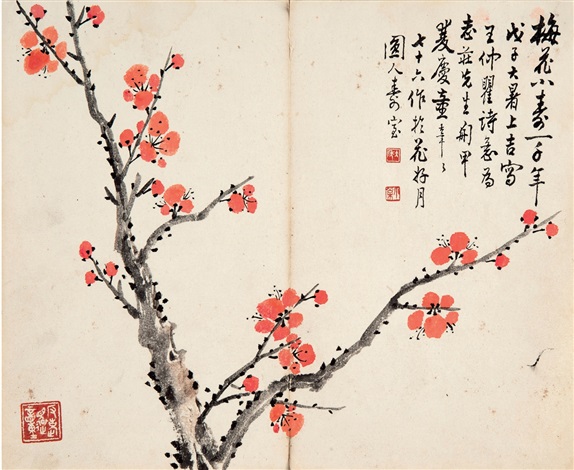 梅花小壽一千年
戊子大暑上吉寫
王仲瞿詩意為
志莊先生周甲
雙慶童
七十六作於花好月
圓人壽室